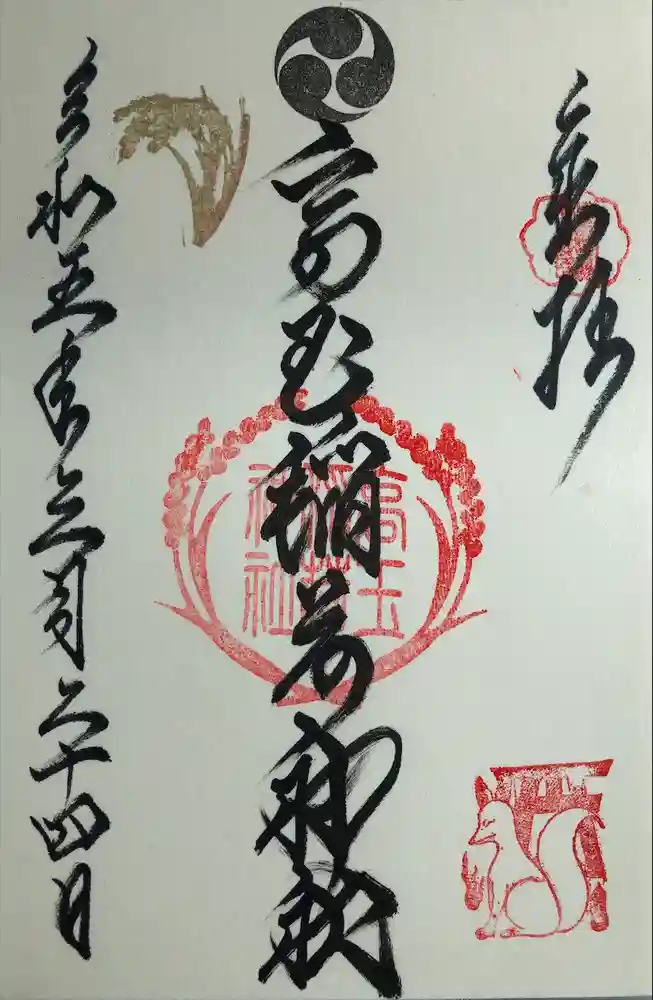 奉拝
高玉稲荷神社
高玉
神社
令和五年三月二十四日